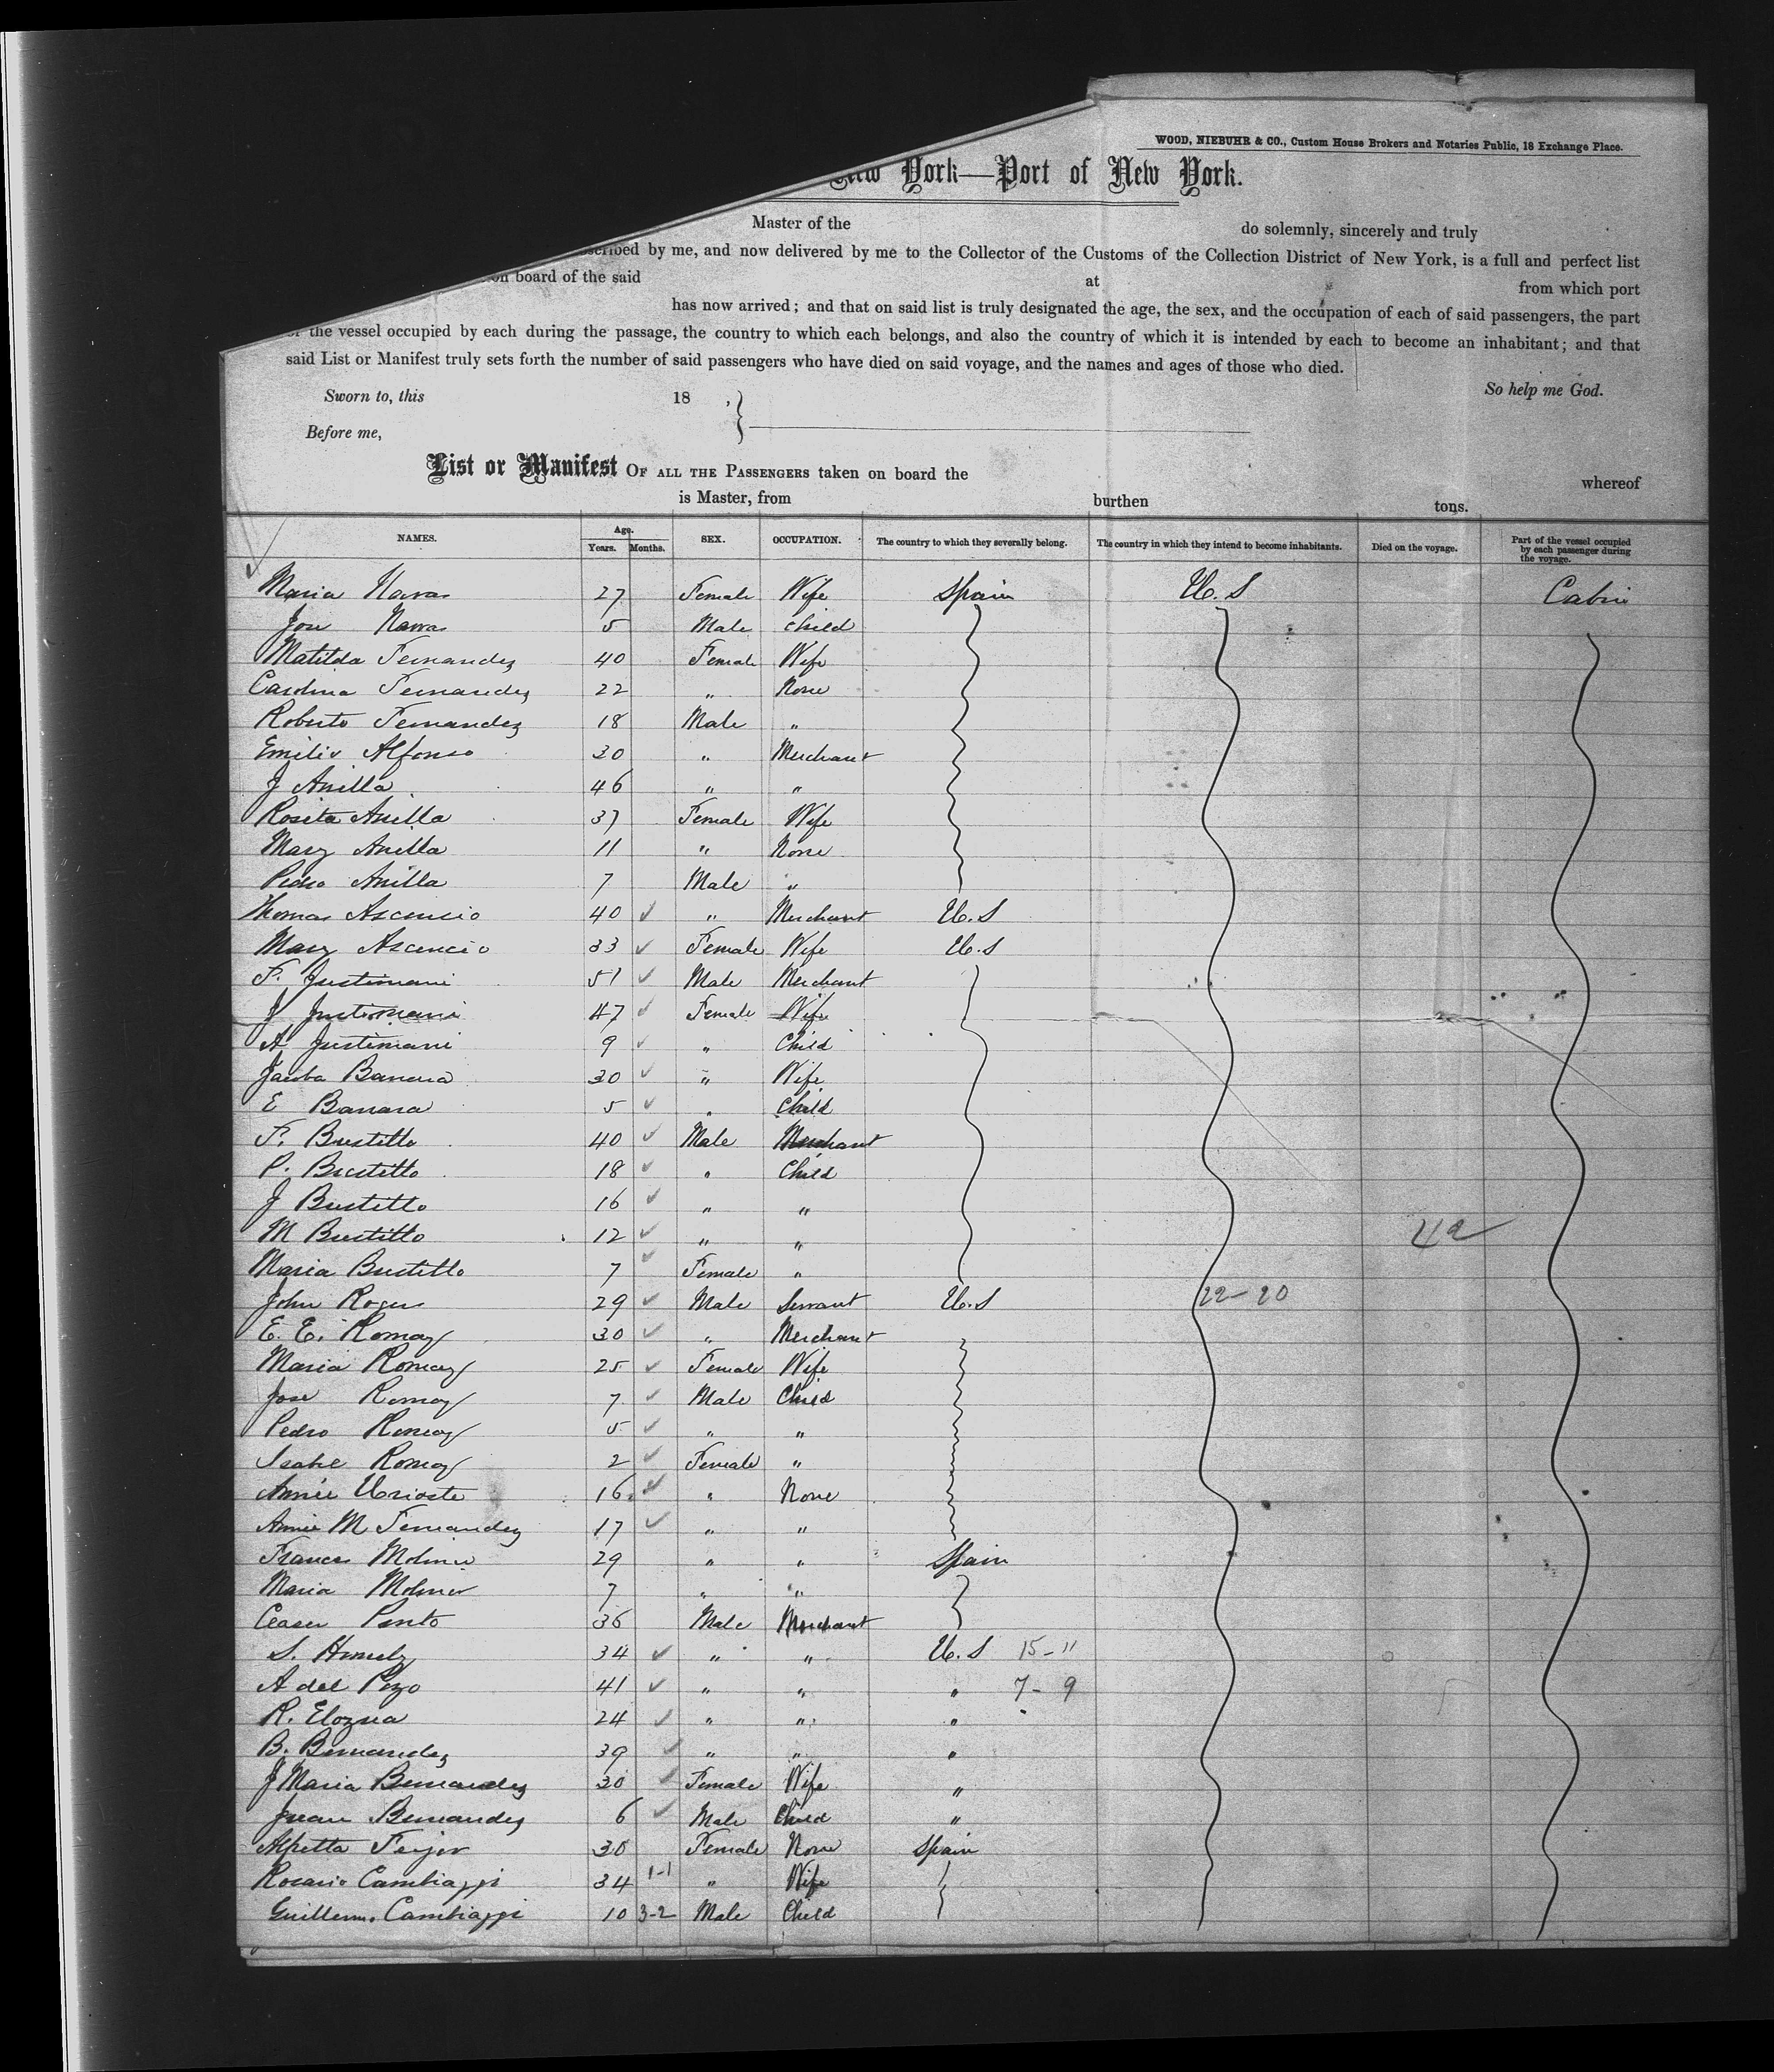 WOOD, NIEBUHR & CO., Custom House Brokers and Notaries Public, 18 Exchange Place.
New York—Port of New York.
Master of the do solemnly, sincerely and truly
scribed by me, and now delivered by me to the Collector of the Customs of the Collection District of New York, is a full and perfect list
on board of the said at from which port
has now arrived; and that on said list is truly designated the age, the sex, and the occupation of each of said passengers, the part
of the vessel occupied by each during the passage, the country to which each belongs, and also the country of which it is intended by each to become an inhabitant; and that
said List or Manifest truly sets forth the number of said passengers who have died on said voyage, and the names and ages of those who died.
So help me God.
Sworn to, this 18 ,
Before me,
List or Manifest OF ALL THE PASSENGERS taken on board the whereof
is Master, from burthen tons.
NAMES. Age. Years. Months. SEX. OCCUPATION. The country to which they severally belong. The country in which they intend to become inhabitants. Died on the voyage. Part of the vessel occupied by each passenger during the voyage.
Maria 27 Female Wife Spain U.S Cabin
Jose 5 Male Child
Matilda Fernandez 40 Female Wife
Carolina Fernandez 22 " None
Roberto Fernandez 18 Male "
Emilio Alfonso 30 " Merchant
J 46 " "
Rosita 37 Female Wife
Mary 11 " None
Pedro 7 Male "
Thomas Ascencio 40 " Merchant U.S
Mary Ascencio 33 Female Wife U.S
F. Justiniani 51 Male Merchant
J Justiniani 47 Female Wife
A Justiniani 9 " Child
Jacoba 30 " Wife
E 5 " Child
F. Bustillo 40 Male Merchant
P. Bustillo 18 " Child
J Bustillo 16 " "
M Bustillo 12 " " 42
Maria Bustillo 7 Female "
John Rogers 29 Male Servant U.S 22-20
E. E. Romay 30 " Merchant
Maria Romay 25 Female Wife
Jose Romay 7 Male Child
Pedro Romay 5 " "
Isabel Romay 2 Female "
Annie Urioste 16 " None
Annie M Fernandez 17 " "
Frances 29 " " Spain
Maria 7 " "
Ceaser Pinto 36 Male Merchant
S. 34 " " U.S 15-11
A del Pozo 41 " " " 7-9
R. 24 " " "
B. Bernandez 39 " " "
J Maria Bernandez 30 Female Wife "
Juan Bernandez 6 Male Child "
30 Female None Spain
Rosario Cambiaggi 34 1-1 " Wife
Guillermo Cambiaggi 10 3-2 Male Child